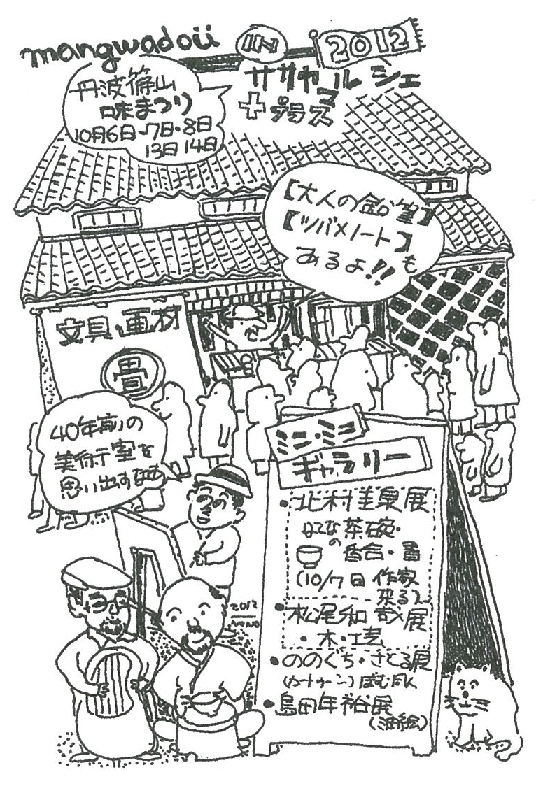 mangwadoii
IN
2012
ササヤマルシェ
+プラス
丹波篠山
味まつり
10月6日・7日・8日
13日14日
【大人の鉛筆】
【ツバメノート】も
あるよ!!
文具と画材
畳
40年前の
美術室を
思い出すなぁ
ミニ・ミニ
ギャラリー
・北村圭泉展
はてな茶碗・
の香合・畳
(10/7日 作家
来る)
・松尾和哉展
・木・工芸
・ののぐち・さとる展
・島田年裕展
(油絵)
2012